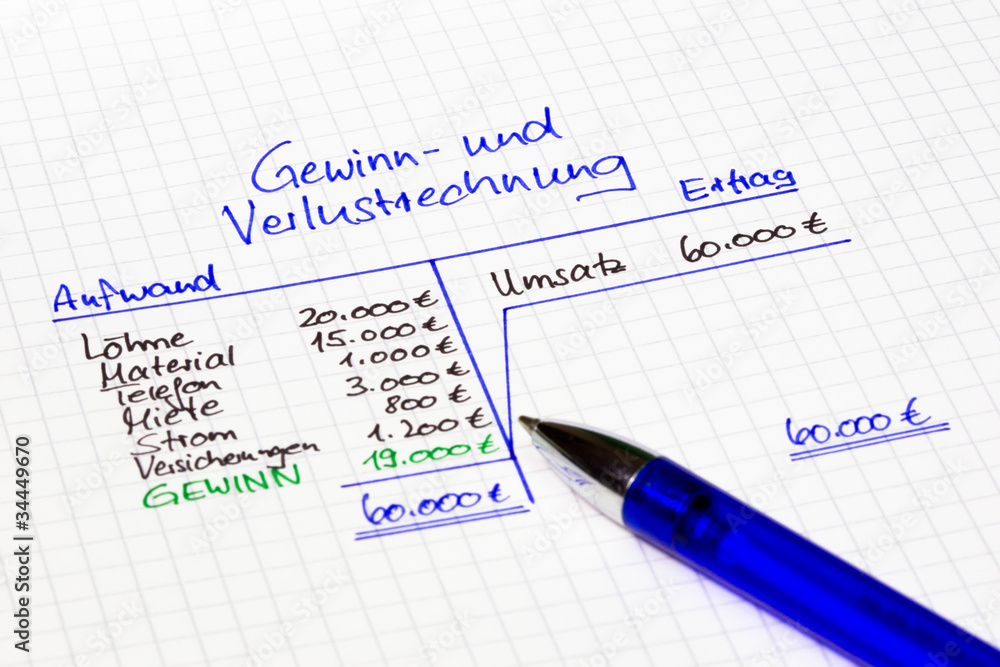 Gewinn- und
Verlustrechnung
Aufwand
Ertrag
Löhne 20.000 €
Material 15.000 €
Telefon 1.000 €
Miete 3.000 €
Strom 800 €
Versicherungen 1.200 €
GEWINN 19.000 €
60.000 €
Umsatz 60.000 €
60.000 €
Adobe Stock | #34449670